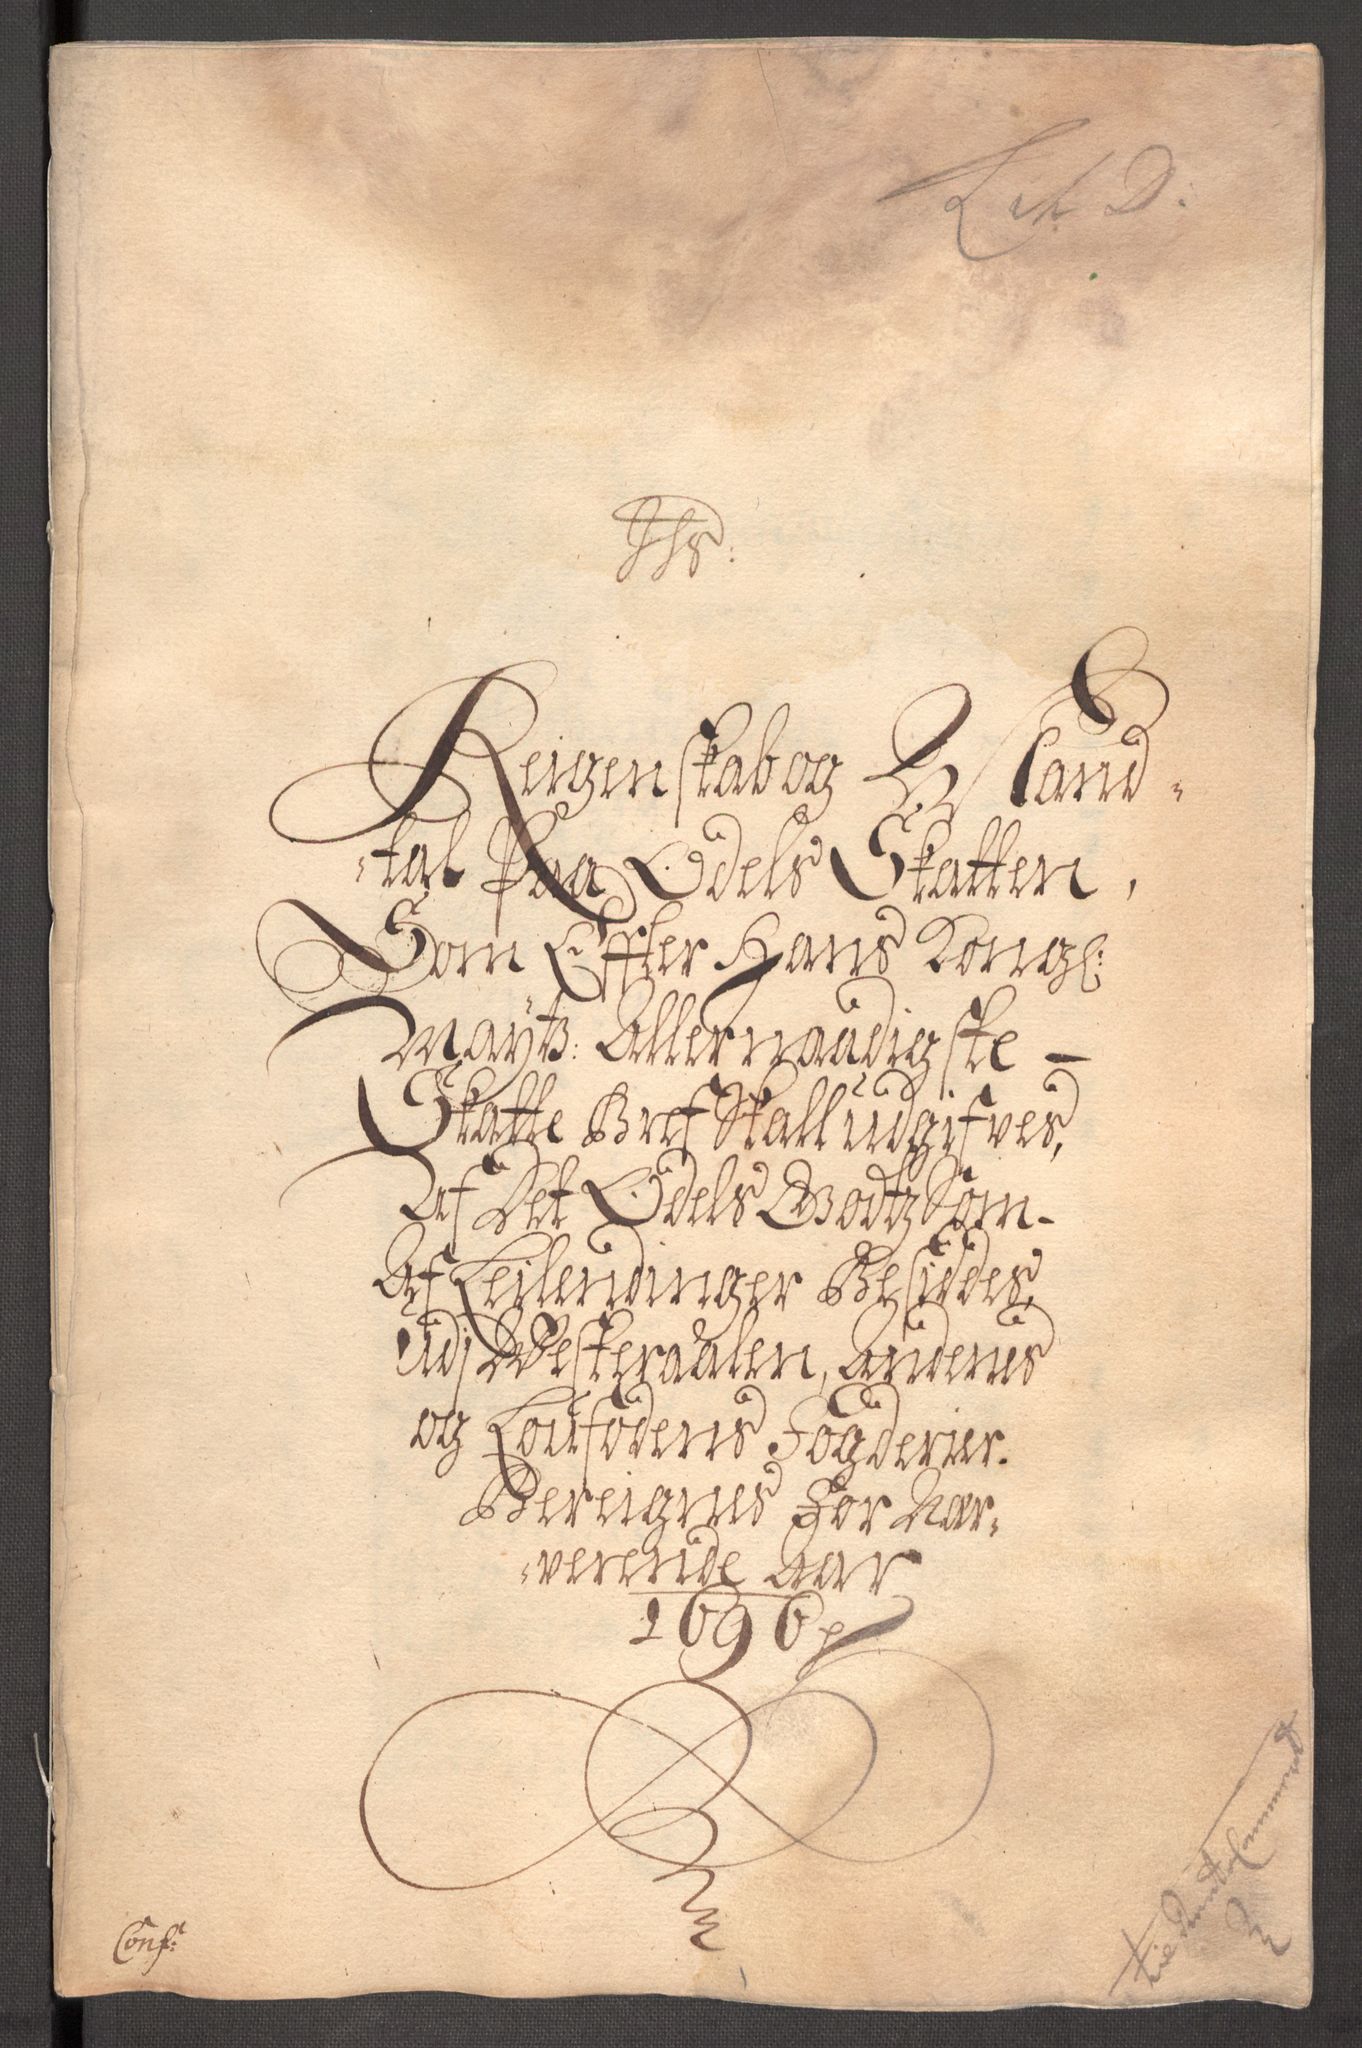 Lit D:
Jhs:
Reigenskab og Mand-
-tal Paa Odels Skatten,
Som Effter Hans Kongl:
Mayts: Allernaadigste
Skatte Bref Skall udgifves,
Af Det Odels Godtz Som
Af Leilendinger Besiddes,
Udj Westeraalen, Andenes
og Loufodens Fogderier.
Beregnes For Nær-
-verende Aar
1696 p
Conf: